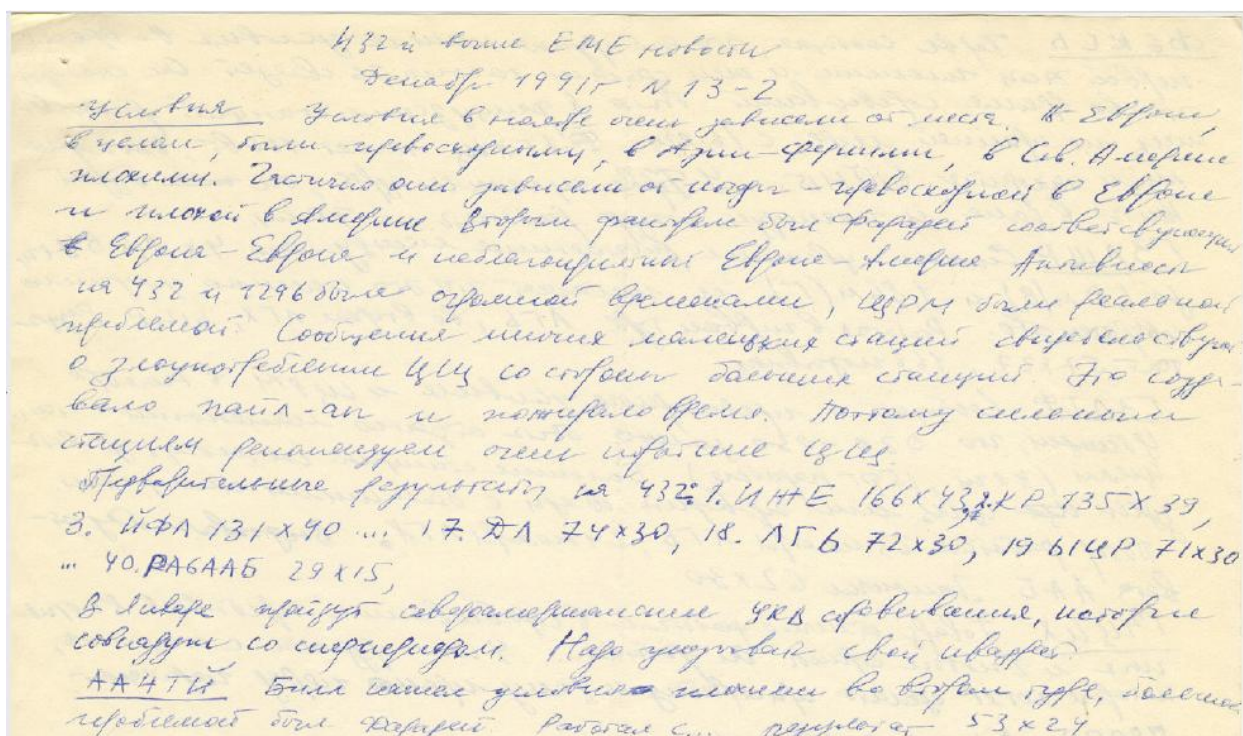 432 и выше ЕМЕ новости
Декабрь 1991г N 13-2
Условия Условия в ноябре очень зависели от места. В Европе,
в целом, были превосходными, в Азии - ферными, в Сев. Америке
плохими. Частично они зависели от погоды - превосходной в Европе
и плохой в Америке Вторым фактором был Фарадей соответствующий
Европа - Европа и неблагоприятный Европа - Америка Активность
на 432 и 1296 была огромной временами, ЩРМ были реальной
проблемой. Сообщения многих маленьких станций свидетельствуют
о злоупотреблении ЦЩ со стороны больших станций Это созда-
вало пайл-ап и пожирало время. Поэтому сильным
станциям рекомендуем очень краткие ЦЩ
Предварительные результаты на 432: 1. ИЖЕ 166х43, 2. КР 135 Х 39,
3. ЙФЛ 131х40 ... 17. ДЛ 74х30, 18. ЛГЬ 72х30, 19 ЫЦР 71х30
... 40. РА6ААБ 29х15,
В Январе пройдут североамериканские УКВ соревнования, которые
совпадут со скедом. Надо указывать свой квадрат.
АА4ТЙ Билл нашел условия плохими во втором туре, большой
проблемой был Фарадей. Работал с... результат 53х24